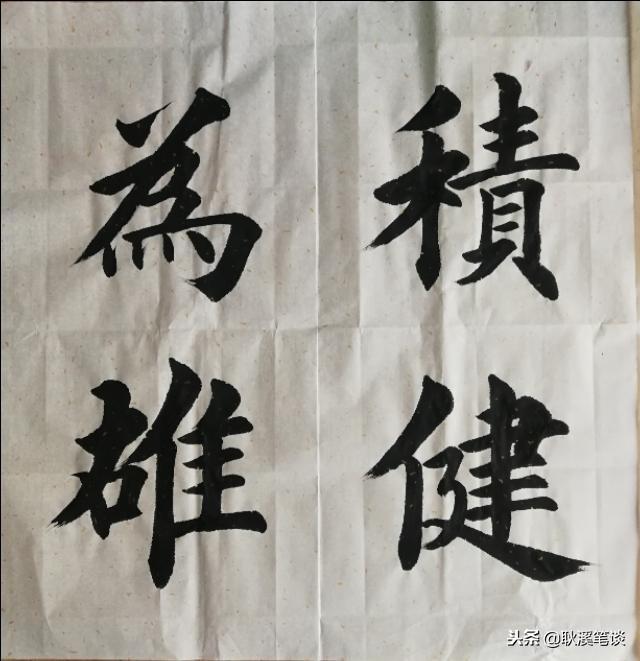 積健
為雄
头条 @耿溪笔谈